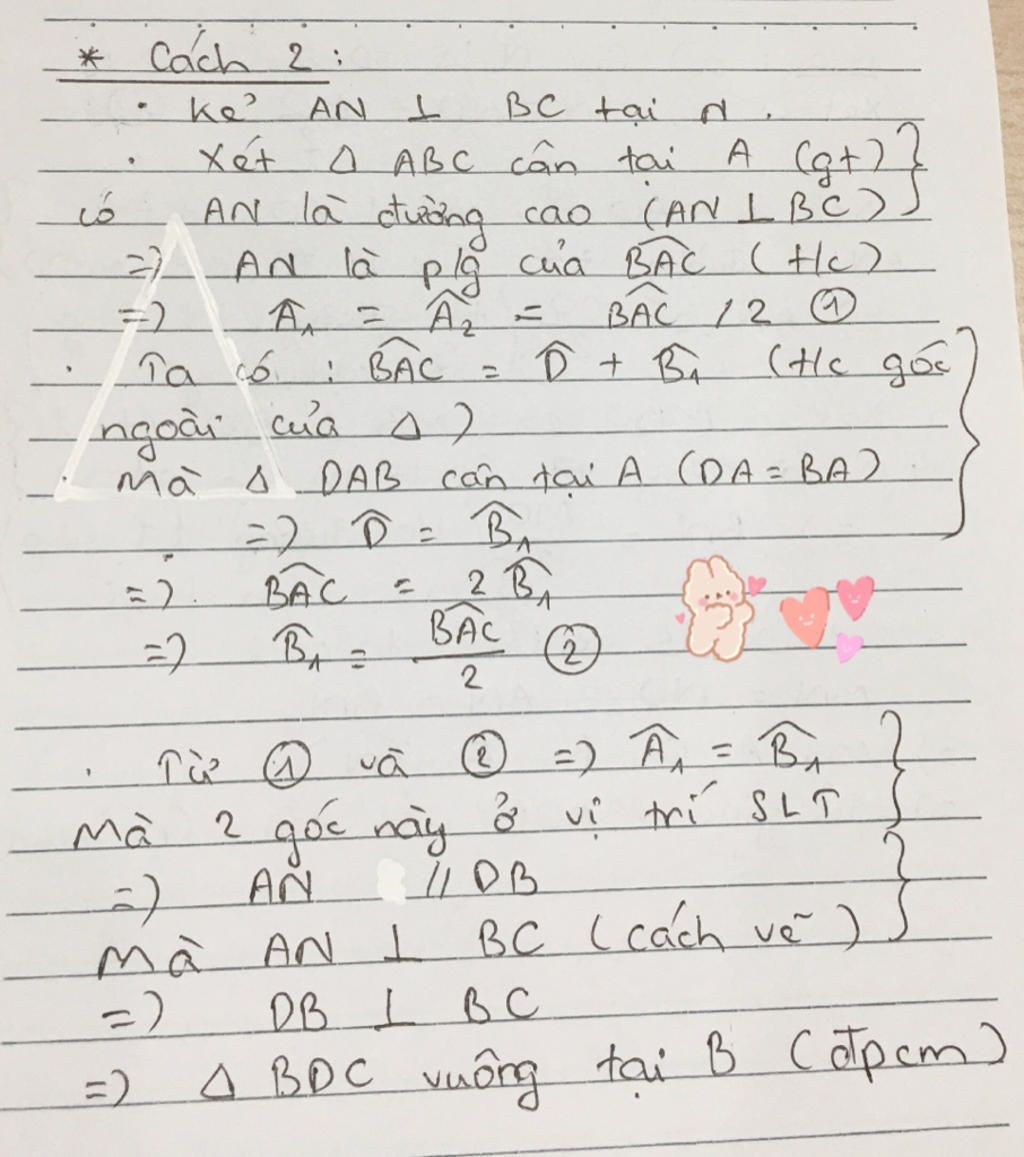 * Cách 2 :
· Kẻ AN ⊥ BC tại N .
· Xét Δ ABC cân tại A (gt)
có AN là đường cao (AN ⊥ BC)
=> AN là p/g của BAC^ (t/c)
=> Â₁ = Â₂ = BAC^ / 2 ①
· Ta có : BAC^ = D^ + B^₁ (t/c góc
ngoài của Δ )
Mà Δ DAB cân tại A (DA = BA)
=> D^ = B^₁
=> BAC^ = 2 B^₁
=> B^₁ = BAC^/2 ②
· Từ ① và ② => Â₁ = B^₁
Mà 2 góc này ở vị trí SLT
=> AN // DB
Mà AN ⊥ BC (cách vẽ)
=> DB ⊥ BC
=> Δ BDC vuông tại B (đpcm)